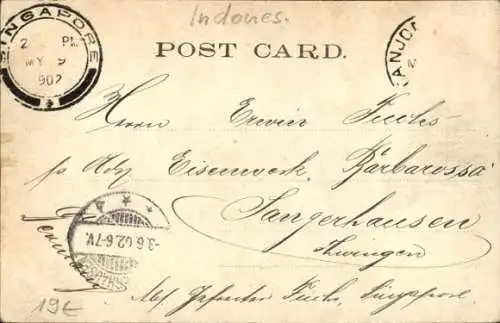 Indones.
SINGAPORE
2 PM
MY 9
902
POST CARD.
ANJO
M
Herrn Erwin Fuchs
p. Adr. Eisenwerk "Barbarossa"
Sangerhausen
Thüringen
Germany
-3.6.02.6-7V.
Fuchs, Singapore.
19€